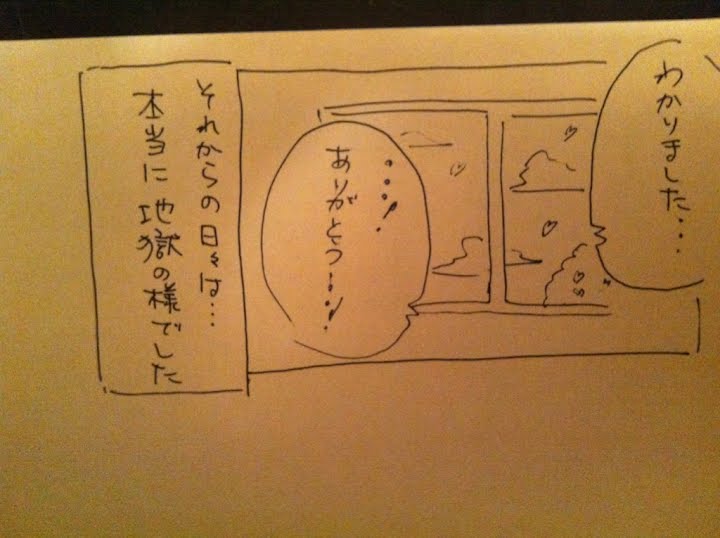 わかりました…
…!
ありがとう…!
それからの日々は…
本当に地獄の様でした